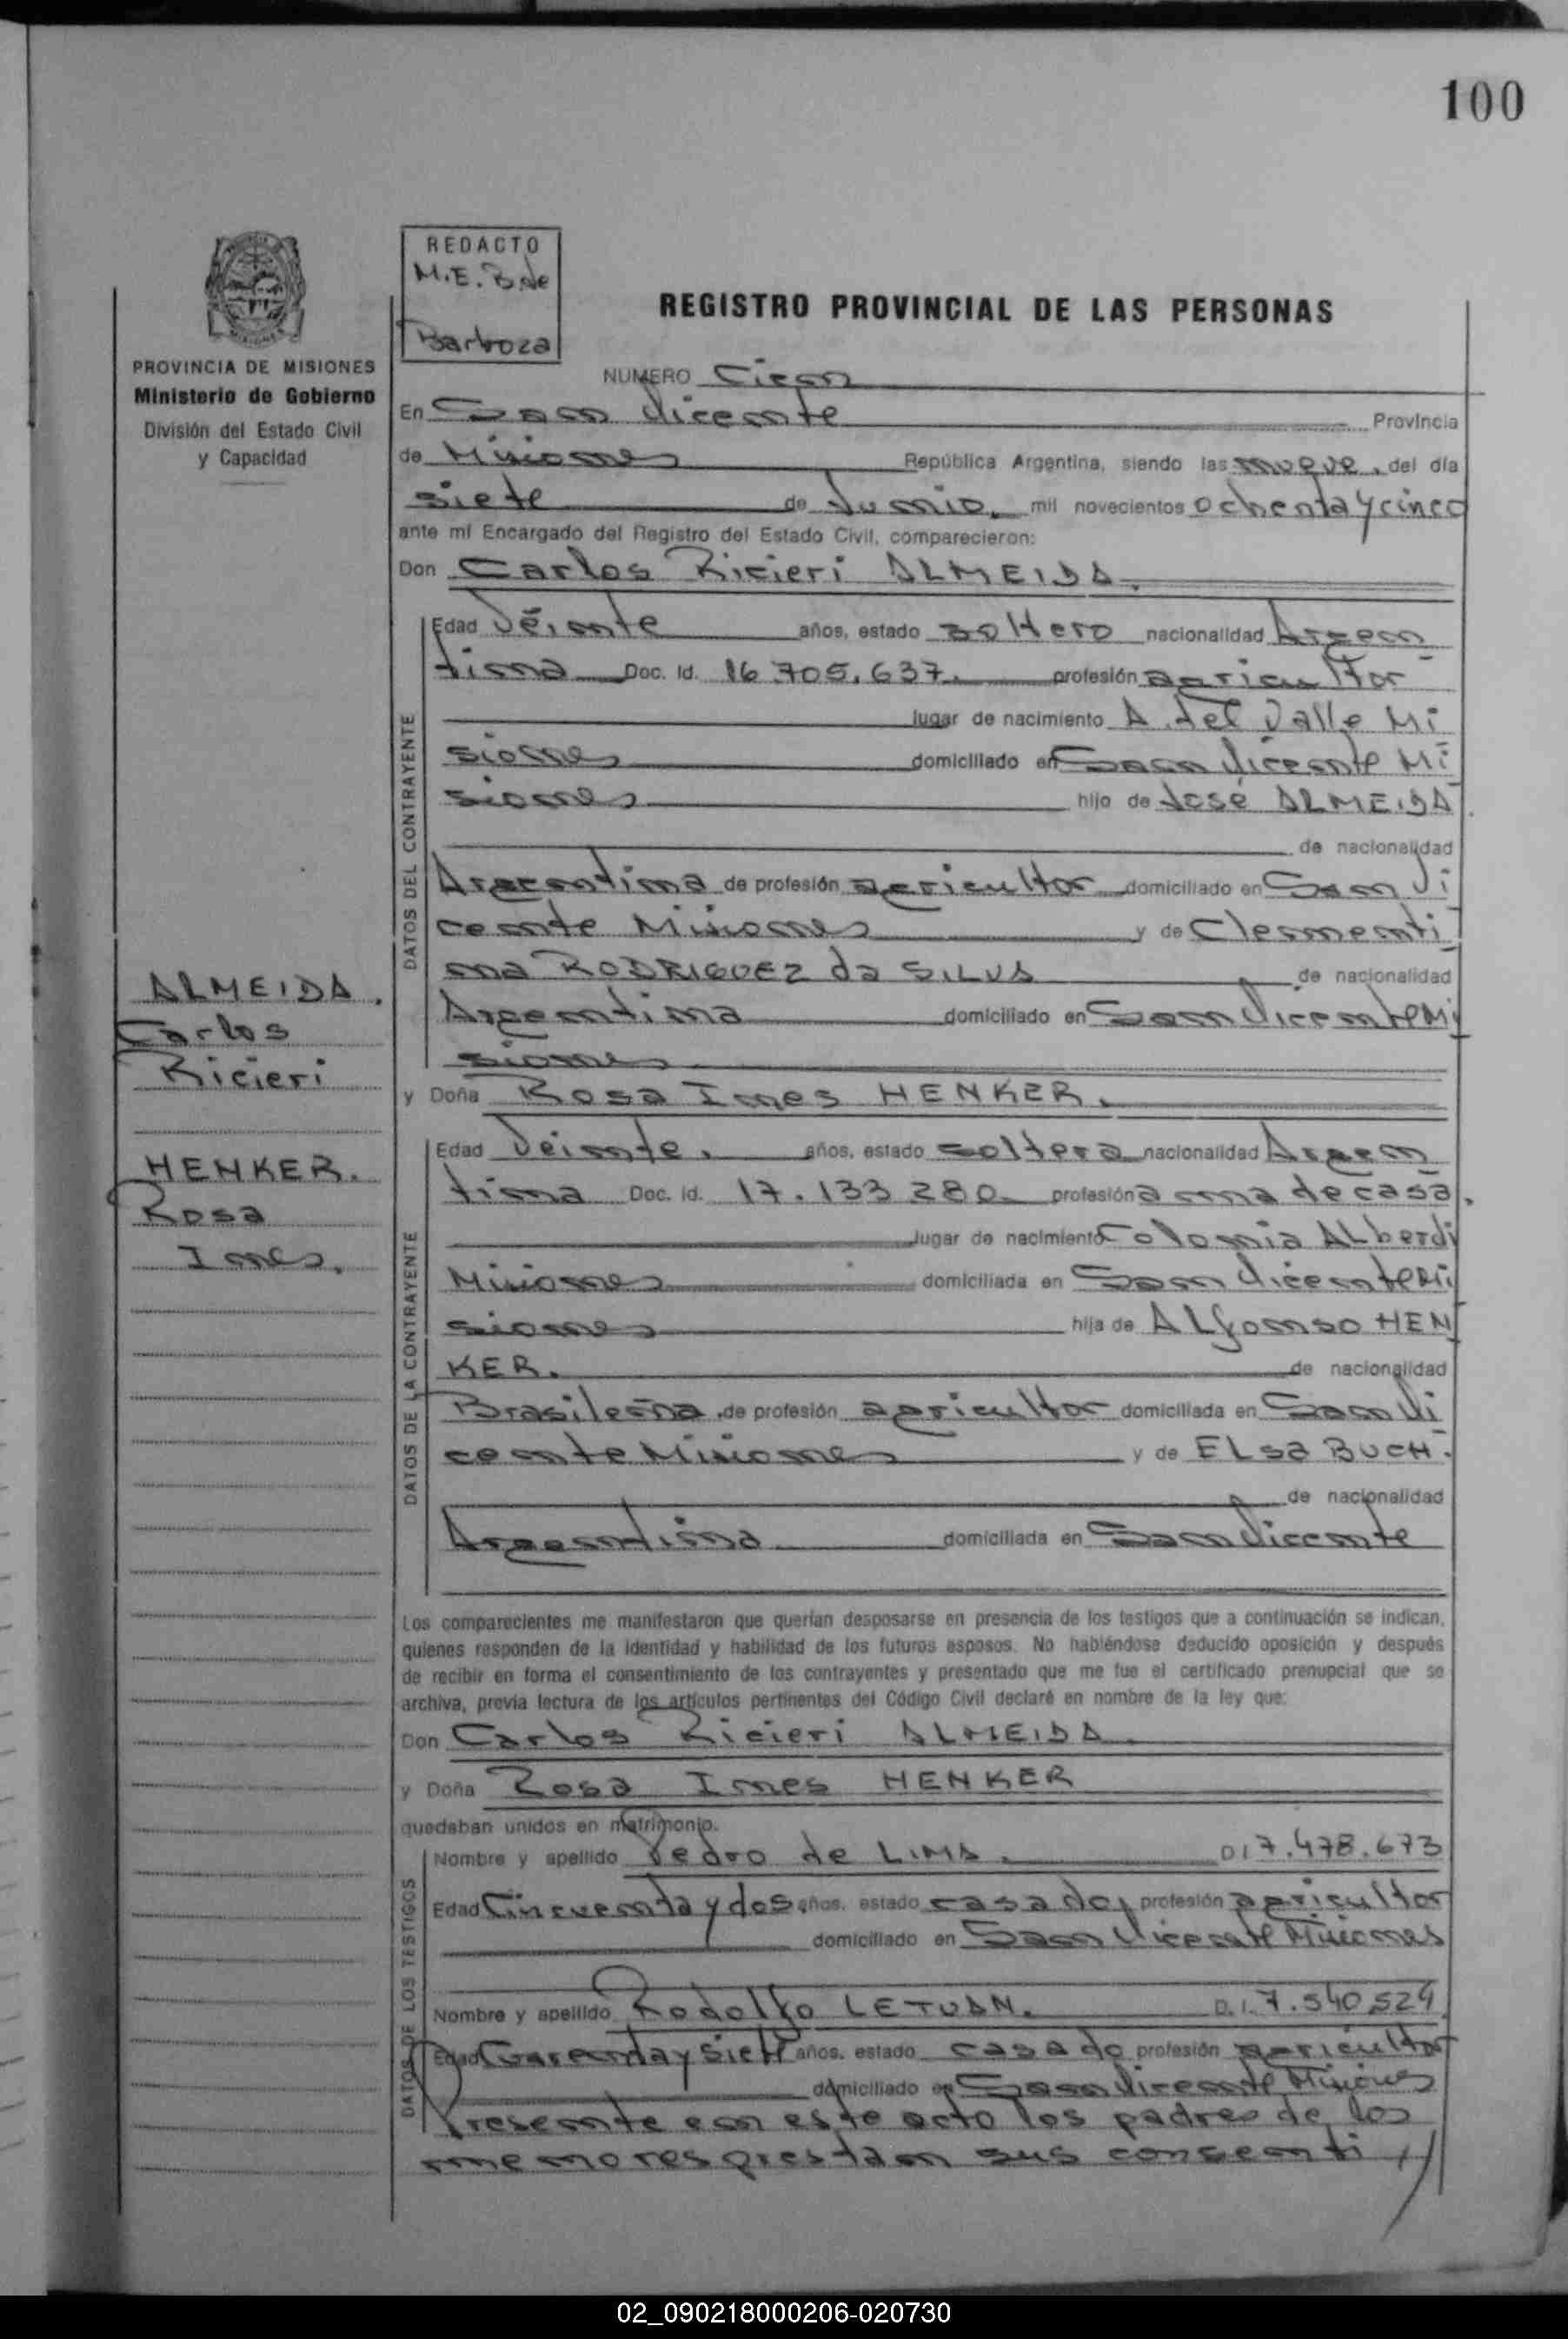 100
REDACTO
M.E.B.de
Barboza
REGISTRO PROVINCIAL DE LAS PERSONAS
PROVINCIA DE MISIONES
Ministerio de Gobierno
División del Estado Civil
y Capacidad
NUMERO Cien
En San Vicente Provincia
de Misiones República Argentina, siendo las nueve, del día
siete de Junio, mil novecientos ochenta y cinco
ante mí Encargado del Registro del Estado Civil, comparecieron:
Don Carlos Ricieri ALMEIDA.
DATOS DEL CONTRAYENTE
Edad Veinte años, estado soltero nacionalidad Argen
tina Doc. Id. 16.705.637. profesión agricultor
lugar de nacimiento A. del Valle Mi
siones domiciliado en San Vicente Mi
siones hijo de José ALMEIDA.
de nacionalidad
Argentina de profesión agricultor domiciliado en San Vi
cente Misiones y de Clementi
na RODRIGUEZ da SILVA de nacionalidad
Argentina domiciliado en San Vicente Mi
siones
ALMEIDA.
Carlos
Ricieri
HENKER.
Rosa
Ines.
y Doña Rosa Ines HENKER.
DATOS DE LA CONTRAYENTE
Edad Veinte. años, estado soltera nacionalidad Argen
tina Doc. Id. 17.133.280. profesión ama de casa.
lugar de nacimiento Colonia ALberdi
Misiones domiciliada en San Vicente Mi
siones hija de ALfonso HEN
KER. de nacionalidad
Brasileña. de profesión agricultor domiciliada en San Vi
cente Misiones y de ELsa BUCH.
de nacionalidad
Argentina domiciliada en San Vicente
Los comparecientes me manifestaron que querían desposarse en presencia de los testigos que a continuación se indican,
quienes responden de la identidad y habilidad de los futuros esposos. No habiéndose deducido oposición y después
de recibir en forma el consentimiento de los contrayentes y presentado que me fue el certificado prenupcial que se
archiva, previa lectura de los artículos pertinentes del Código Civil declaré en nombre de la ley que:
Don Carlos Ricieri ALMEIDA.
y Doña Rosa Ines HENKER
quedaban unidos en matrimonio.
DATOS DE LOS TESTIGOS
Nombre y apellido Pedro de LIMA. DI 7.478.673
Edad Cincuenta y dos años, estado casado, profesión agricultor
domiciliado en San Vicente Misiones
Nombre y apellido Rodolfo LETVAN. D.I. 7.540.524
Edad Cuarenta y siete años, estado casado profesión agricultor
domiciliado en San Vicente Misiones
Presente en este acto los padres de los
menores prestan sus consenti //
02_090218000206-020730